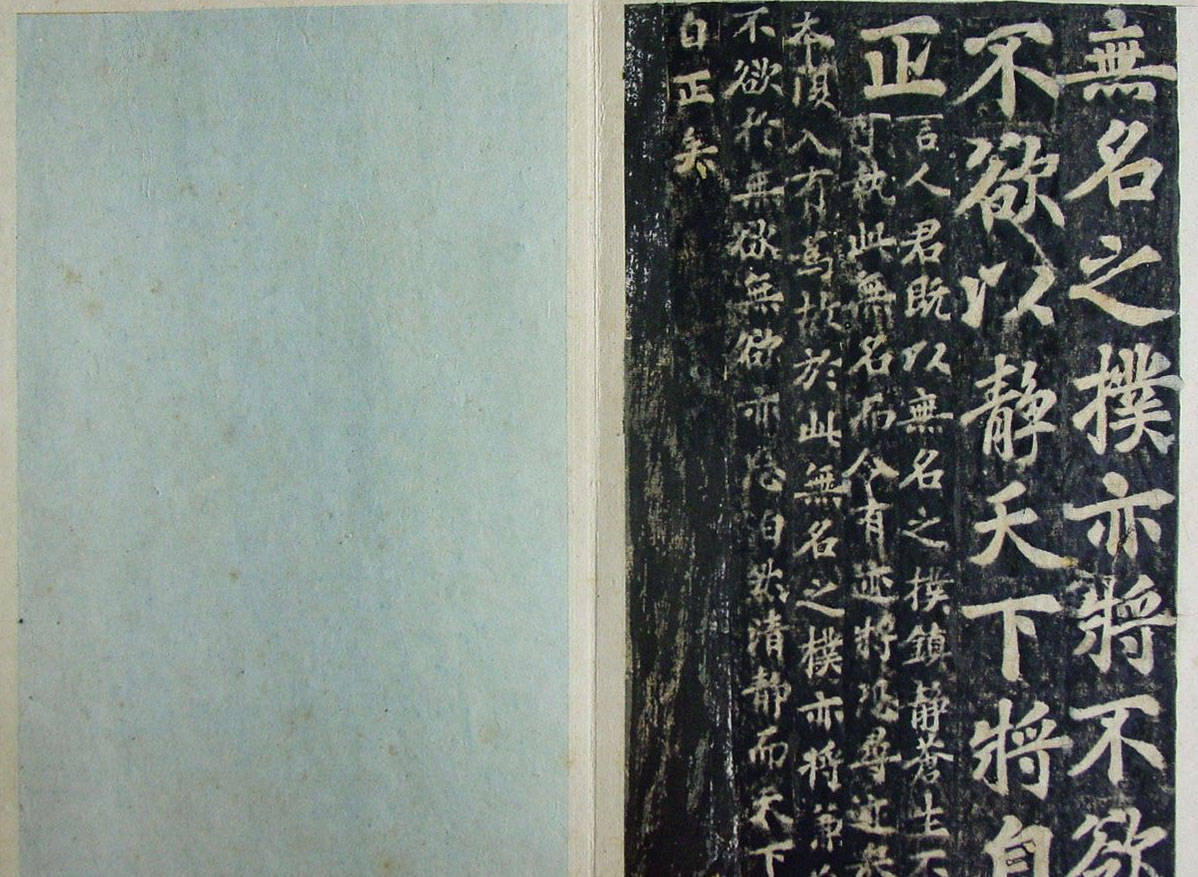 無名之撲亦將不欲
不欲以靜天下將自
正
言人君既以無名之撲鎮静蒼生不
可執此無名而令有迹將恐尋迹喪
本復入有為故於此無名之樸亦將兼
不欲於無欲無欲亦忘自然清静而天下
自正矣